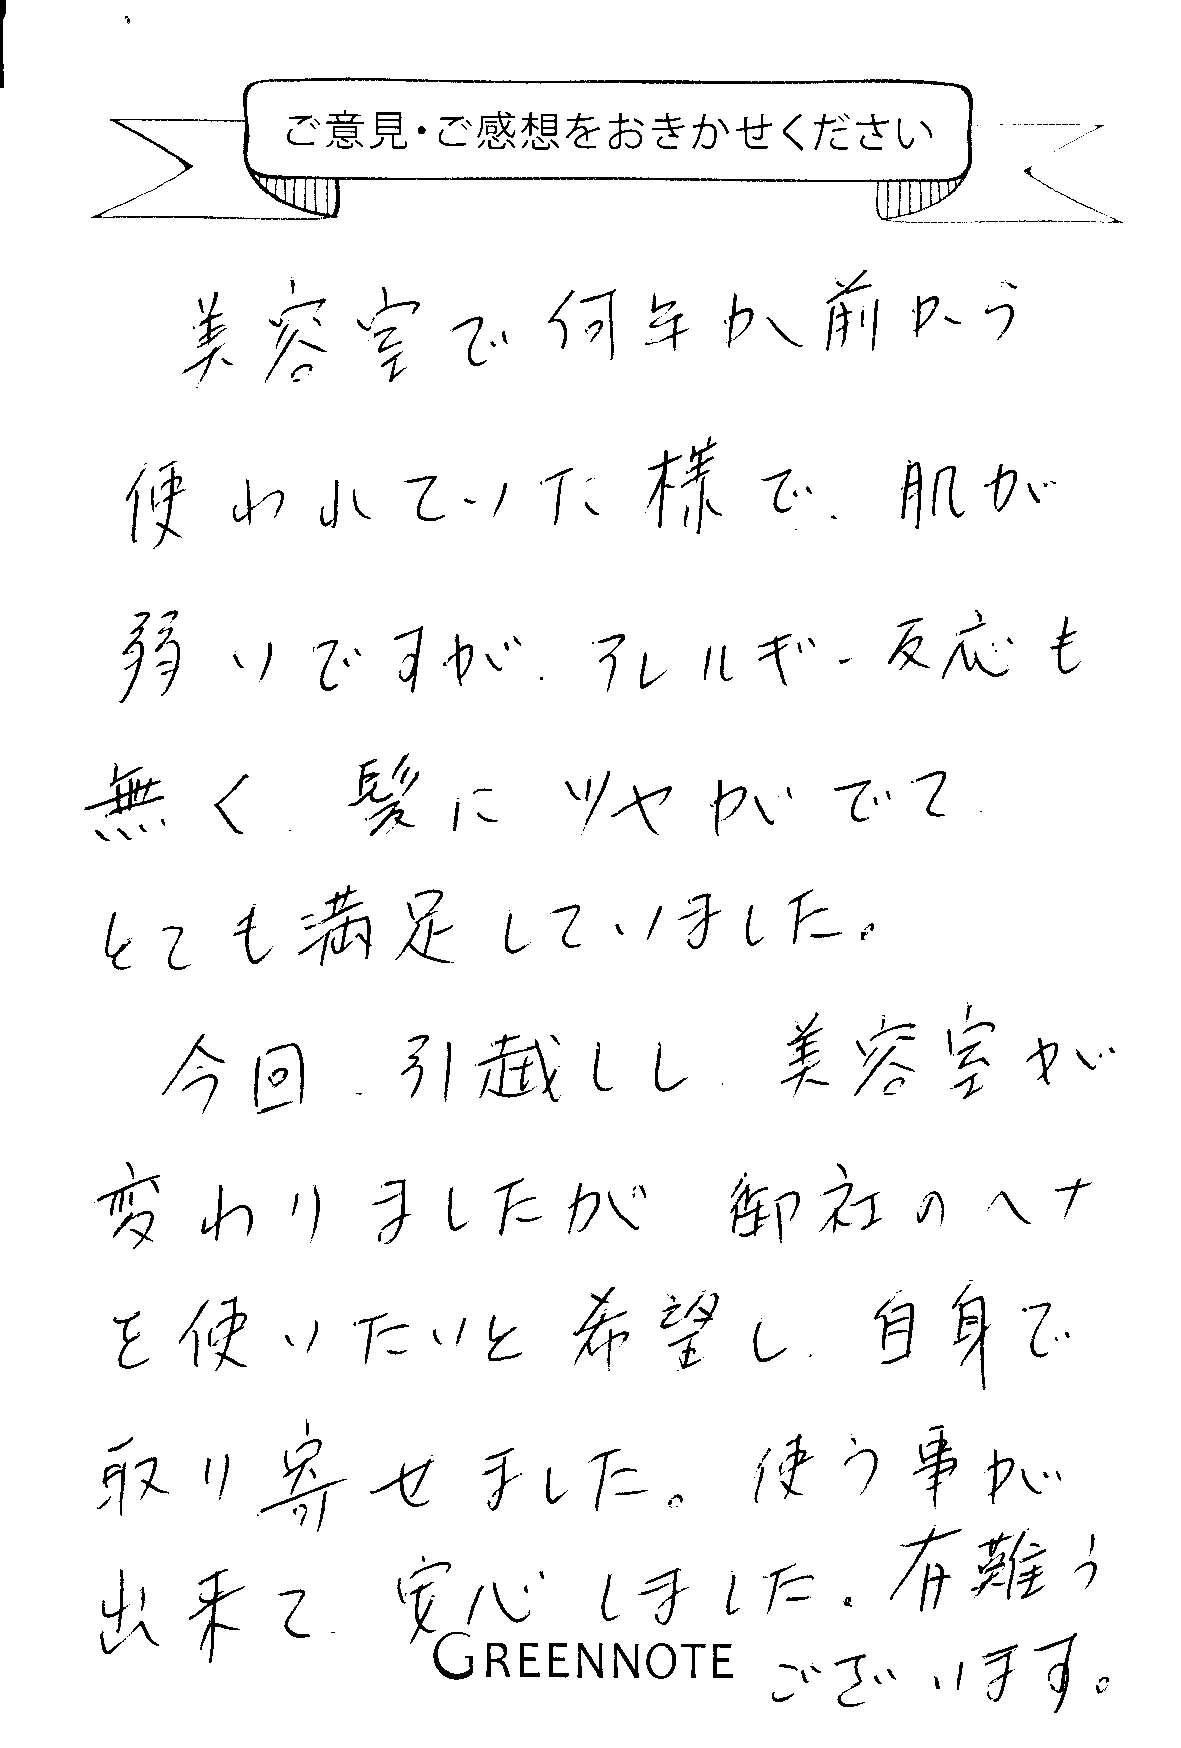 ご意見・ご感想をおきかせください
美容室で何年か前から
使われていた様で、肌が
弱いですが、アレルギー反応も
無く、髪にツヤがでて、
とても満足していました。
今回、引越しし、美容室が
変わりましたが 御社のヘナ
を使いたいと希望し、自身で
取り寄せました。使う事が
出来て、安心しました。有難う
ございます。
GREENNOTE